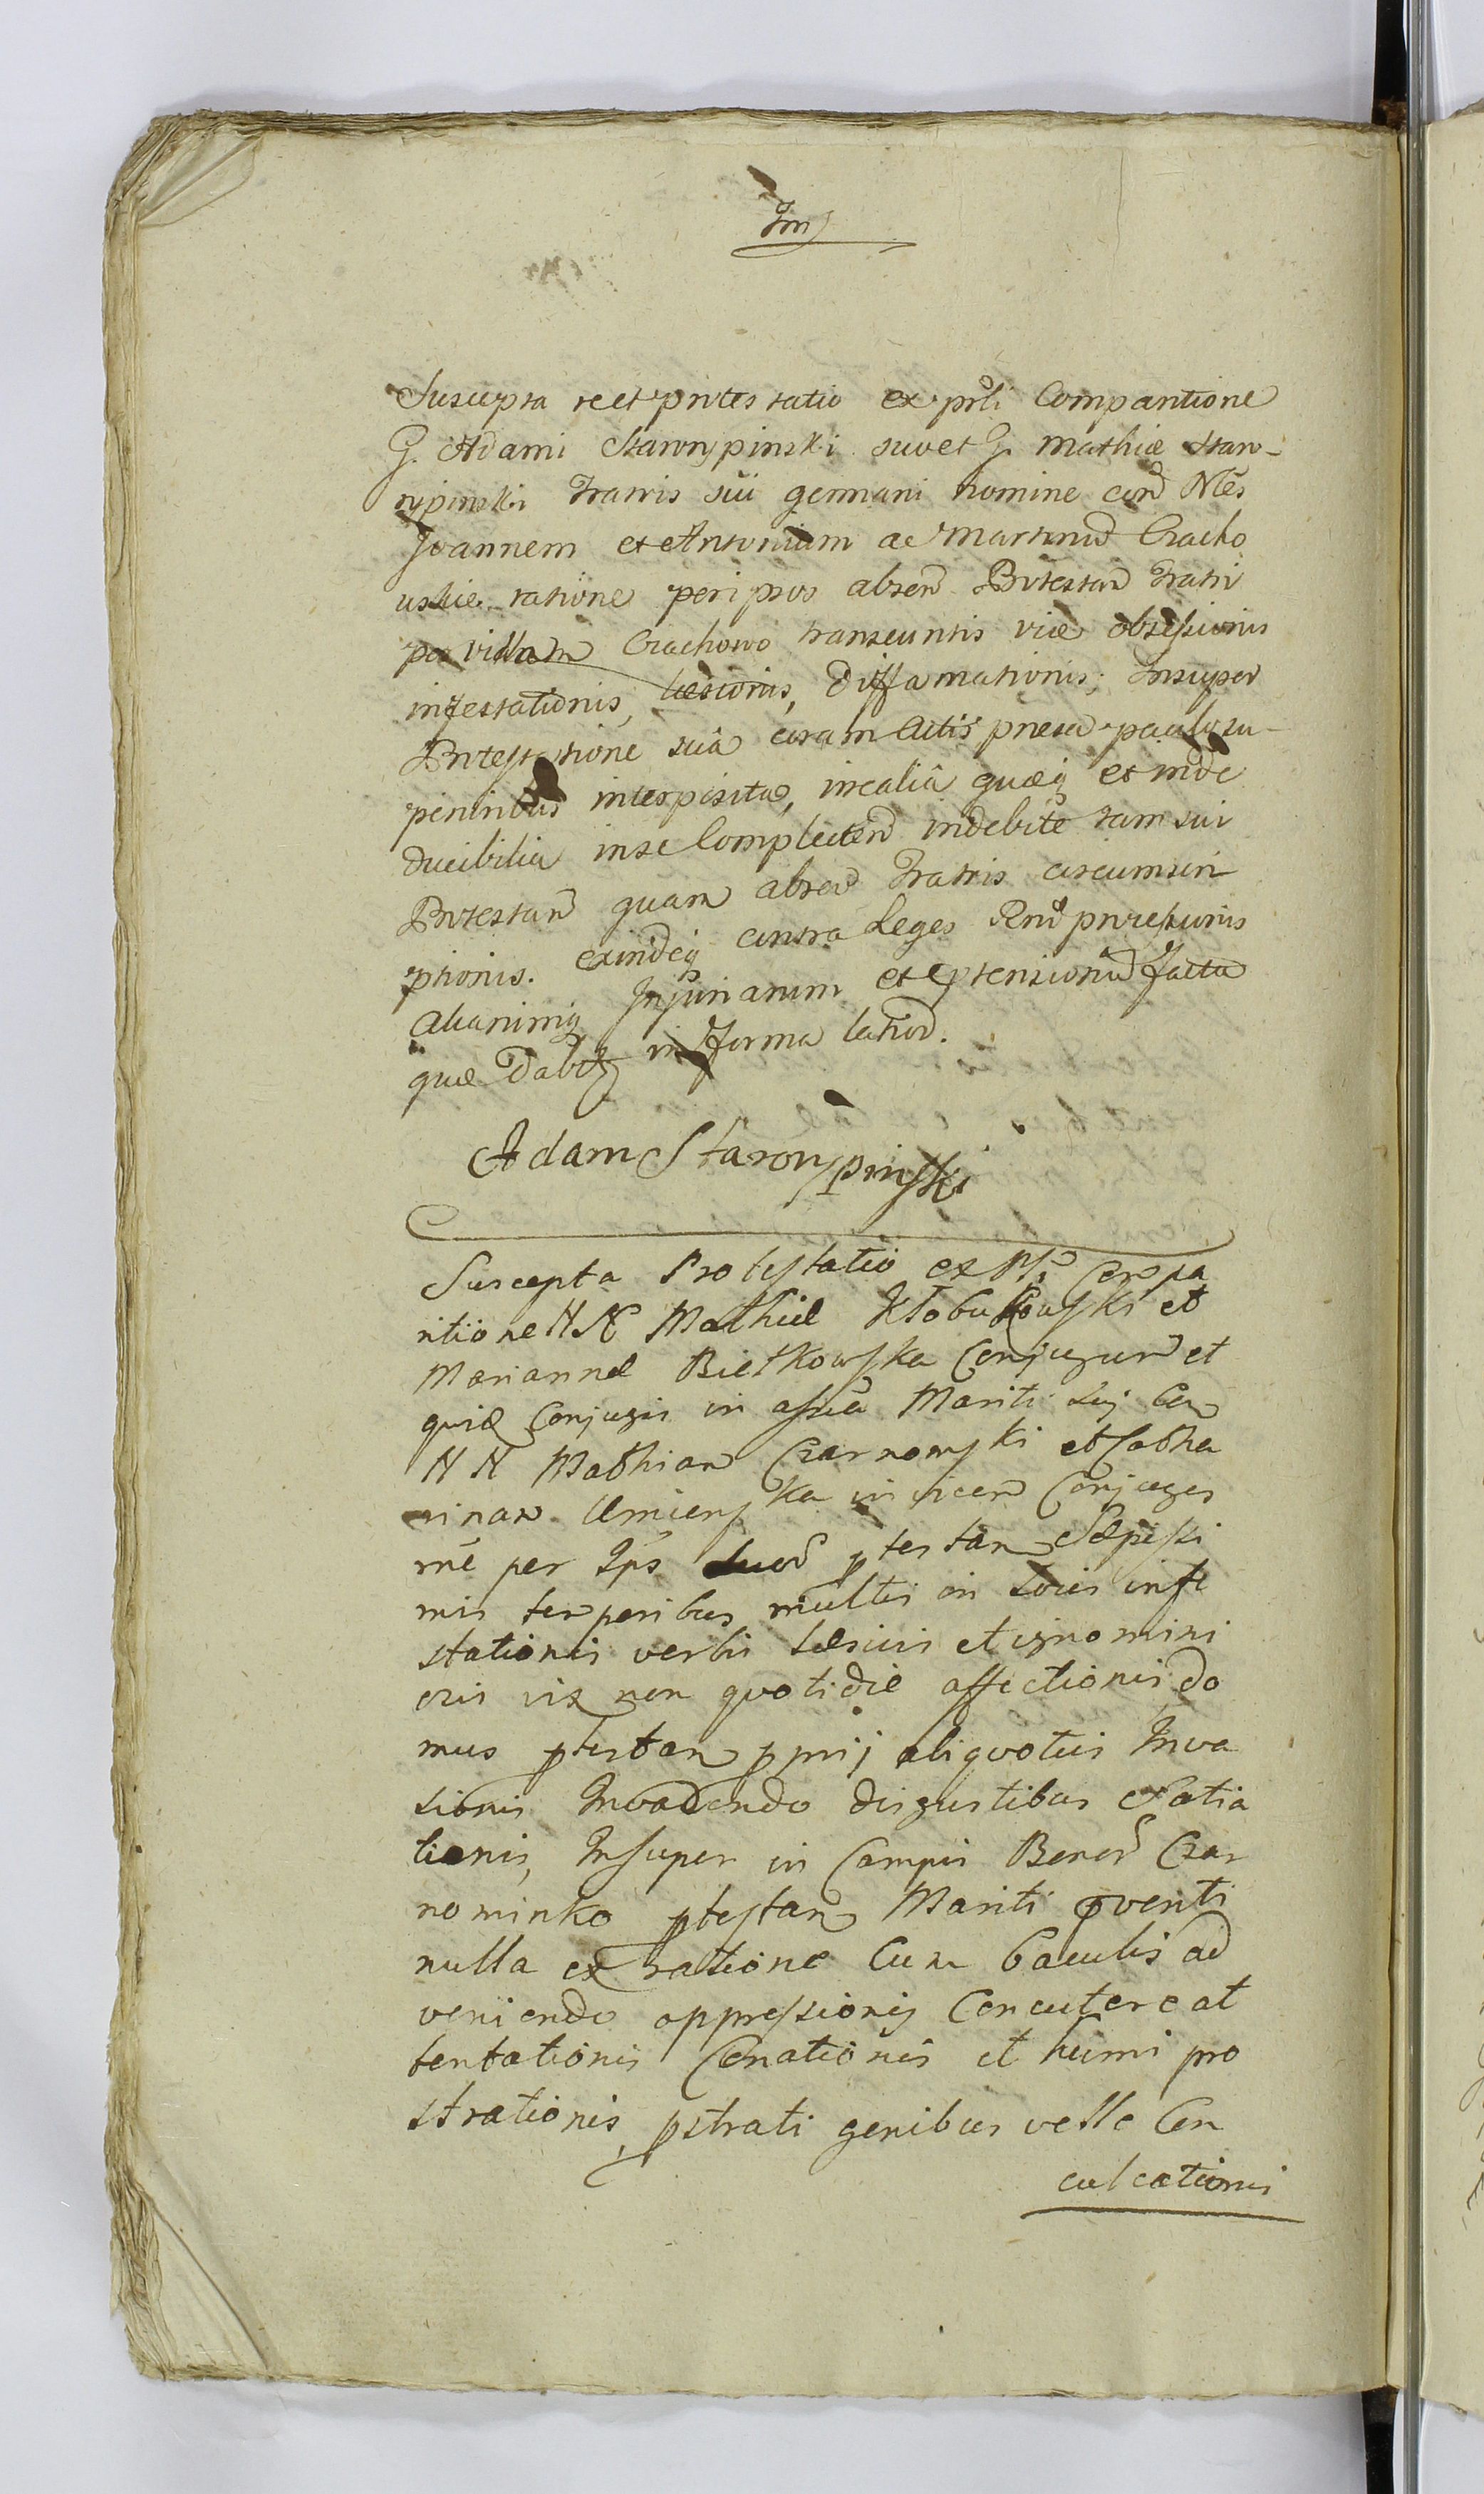 Im
Suscepta reet protestatio ex prli Comparitione
G. Adami Starorypinski suo et G. Mathiæ Staro-
rypinski Fratris sui germani nomine cord Nles
Joannem et Antonium ac Martinud Cracho
uskie ratione per ipsos absend Protestand Fratri
per villam Crachowo transeuntis viæ obsessionis
infestationis, læsionis, Diffamationis, Insuper
Protestatione suâ coram Actis pnesed paulo su-
perioribus interposita, inealiâ quæq et inde
ducibilia in se Complectend indebite tam sui
Protestand quam absed Fratris circumscri
ptionis. exindeq contra Leges Rnd
aliarumq Injuriarum et eptensionud facta
quæ Dabit in forma latiod.
Adam Starorypinski
Suscepta Protestatio ex Compa
ritione NN Mathiæ Kłobukowski et
Mariannæ Bietkowska Conjugum et
quidæ Conjugis in assia Mariti sui Con
NN Mathiam Czarnomski et Catha
rinam Umienska invicem Conjuges
me per Ips Suod ptestan Sæpissi
mis temporibus multis in Locis infe
stationis verbis læsivis et ignomini
osis vix non quotidie affectionis do
mus ptestan pprij aliquoties Inva
sionis Invadendo disgustibus exatia
tionis, Insuper in Campis Bonod Czar
nominko ptestan Mariti oventi
nulla ex ratione Cum baculis ad
veniendo oppressionis Concutere at
tentationis Conationis et humi pro
strationis, pstrati genibus velle Con
culcationis